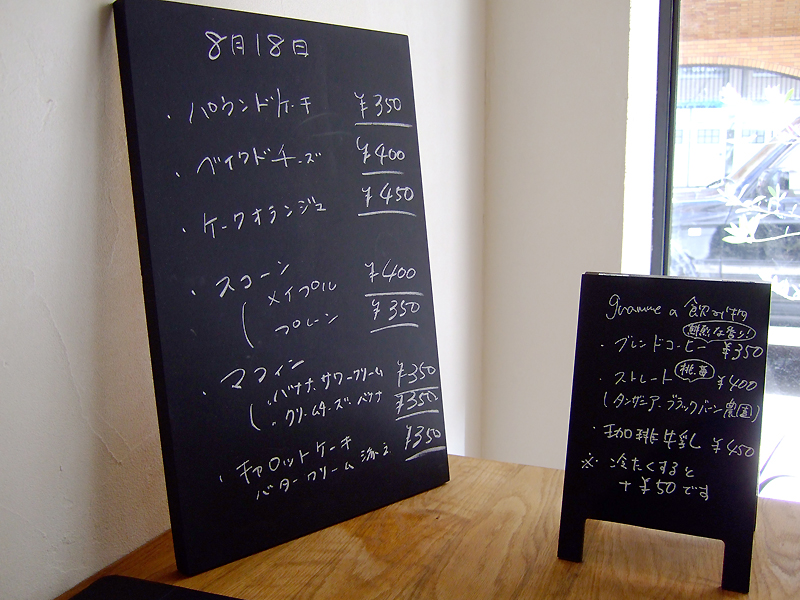 8月18日
・パウンドケーキ ¥350
・ベイクドチーズ ¥400
・ケークオランジュ ¥450
・スコーン
メイプル ¥400
プレーン ¥350
・マフィン
・バナナサワークリーム ¥350
・クリームチーズ・バナナ ¥350
・キャロットケーキ ¥350
バタークリーム 添え
gramme の 飲み物
・ブレンドコーヒー ¥350
・ストレート ¥400
(タンザニア・ブラックバーン農園)
・珈琲牛乳 ¥450
※冷たくすると
+¥50です